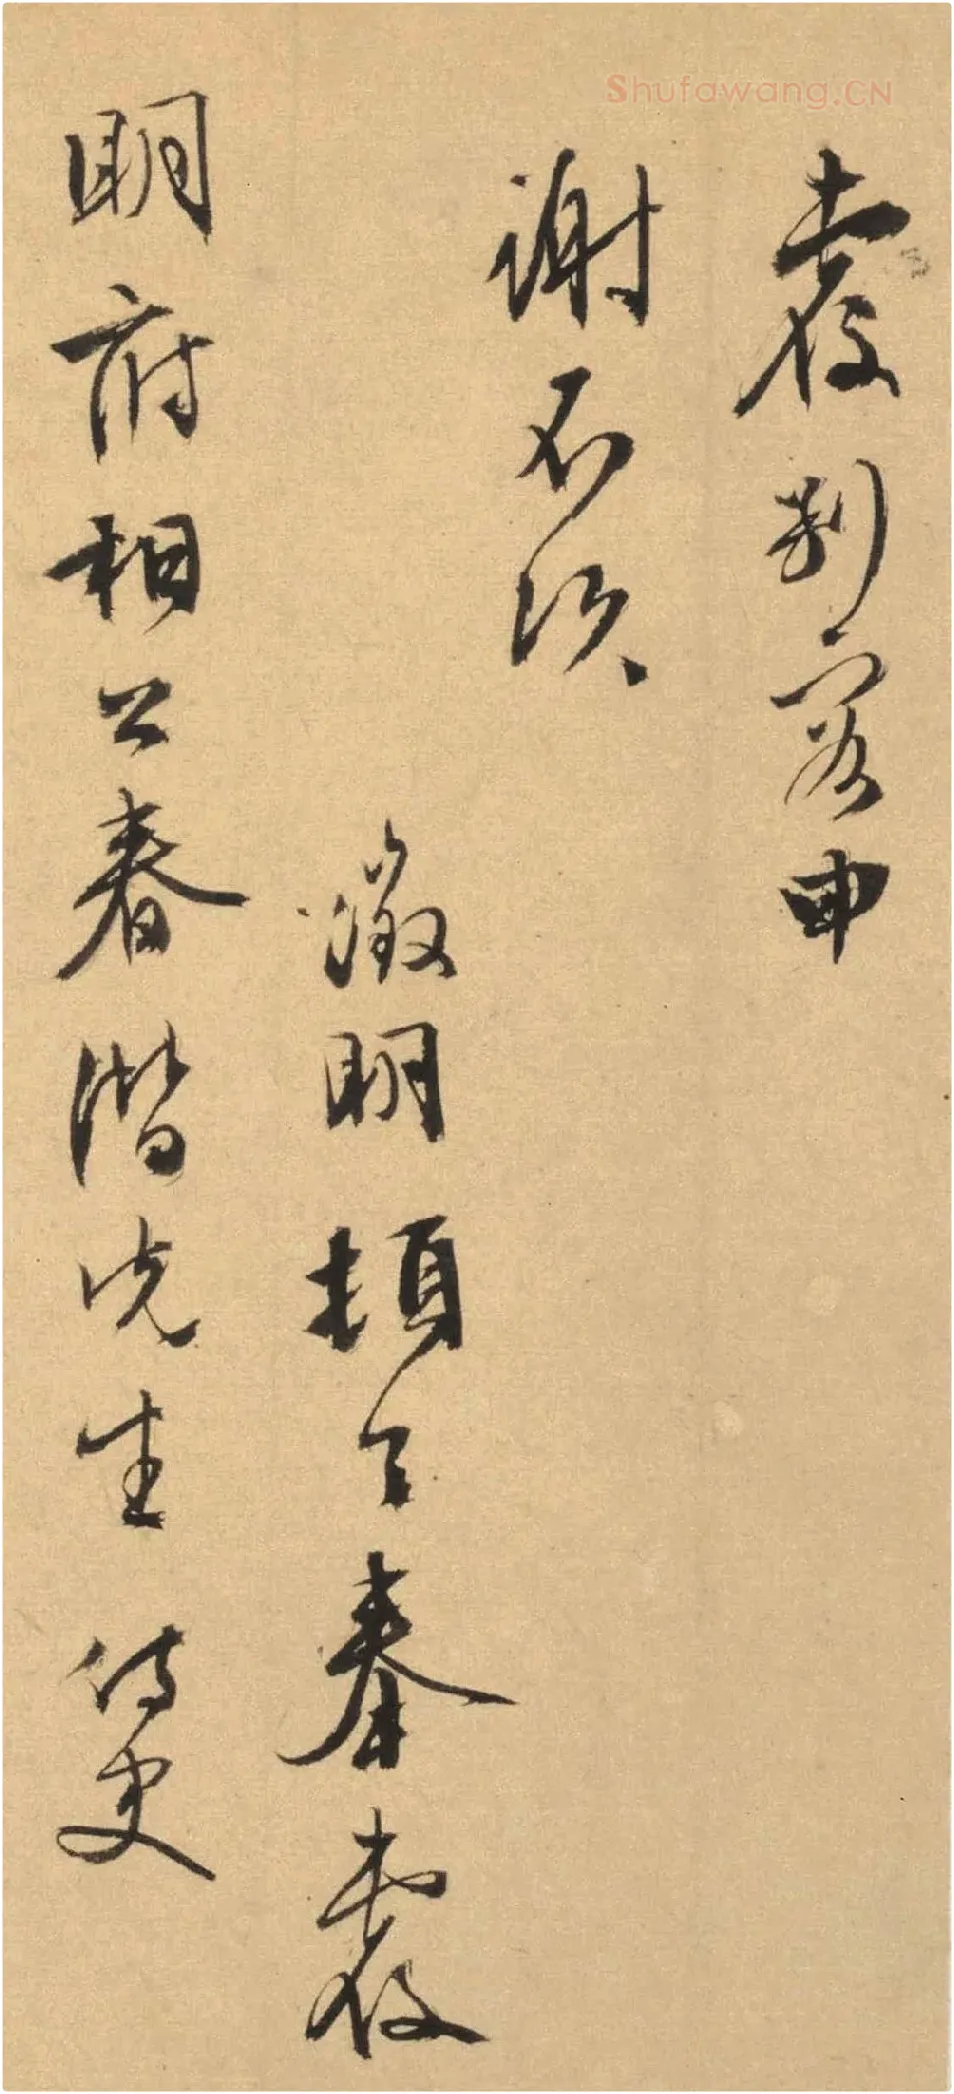 Shufawang.CN
覆 别容申
谢不次
徵明頓首奉覆
明府相公春潛先生 侍史